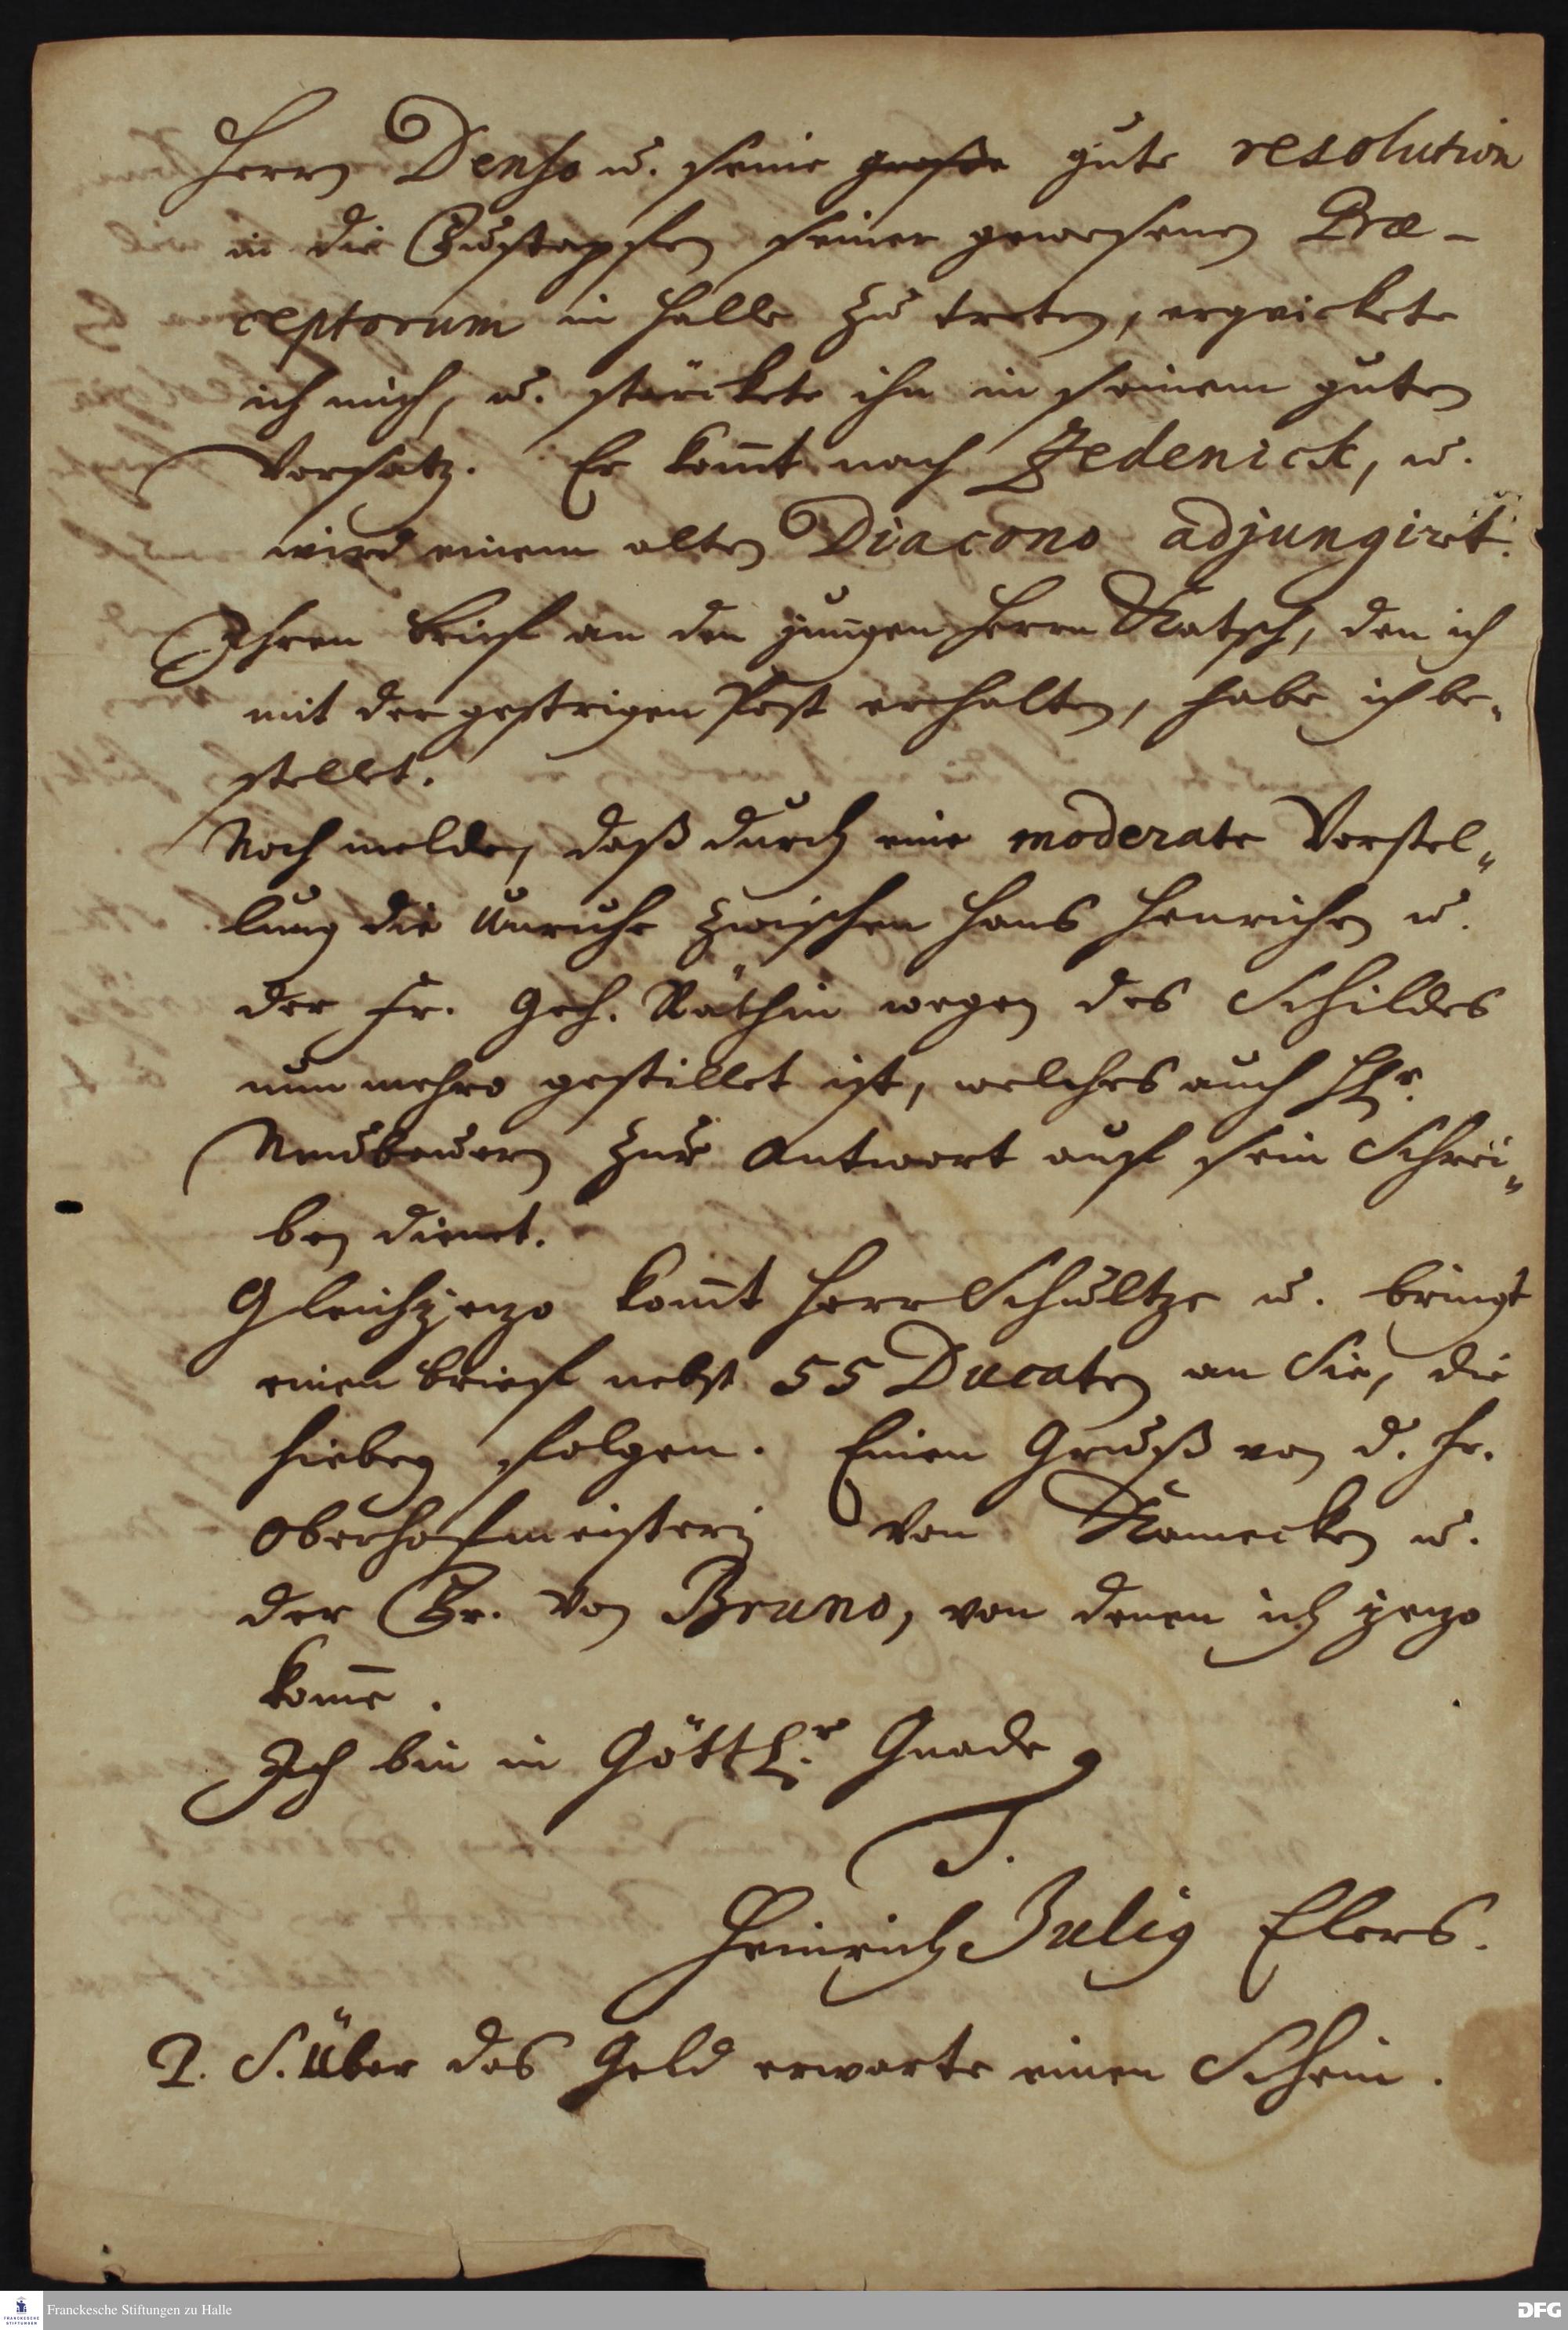 Herrn Denso u. seine große gute resolution
in die Fustapfen seiner gewesenen Præ-
ceptorum in Halle zu treten, erquickete
ich mich, u. stärckete ihn in seinem guten
Vorsatz. Er kom̄t nach Zedenick, u.
wird einem alten Diacono adjungiret.
Ihren brief an den jungen Herrn Natsch, den ich
mit der gestrigen Post erhalten, habe ich be-
stellet.
Noch melde, daß durch eine moderate Vorstel-
lung die Unruhe zwischen Hans Henrichen u.
der Fr. Geh. Räthin wegen des Schildes
nun mehro gestillet ist, welches auch H.
Neubauern zur Antwort auf sein Schrei-
ben dienet.
Gleich jezo kom̄t Herr Schultze u. bringt
einen brief nebst 55 Ducaten an Sie, die
hiebey folgen. Einen Gruß von d. Fr.
Oberhofmeisterin von Kamecken u.
der Fr. von Bruno, von denen ich jezo
kom̄e.
Ich bin in Göttl.r Gnade
Heinrich Julius Elers.
P. S. Über das Geld erwarte einen Schein.
Franckesche Stiftungen zu Halle
DFG